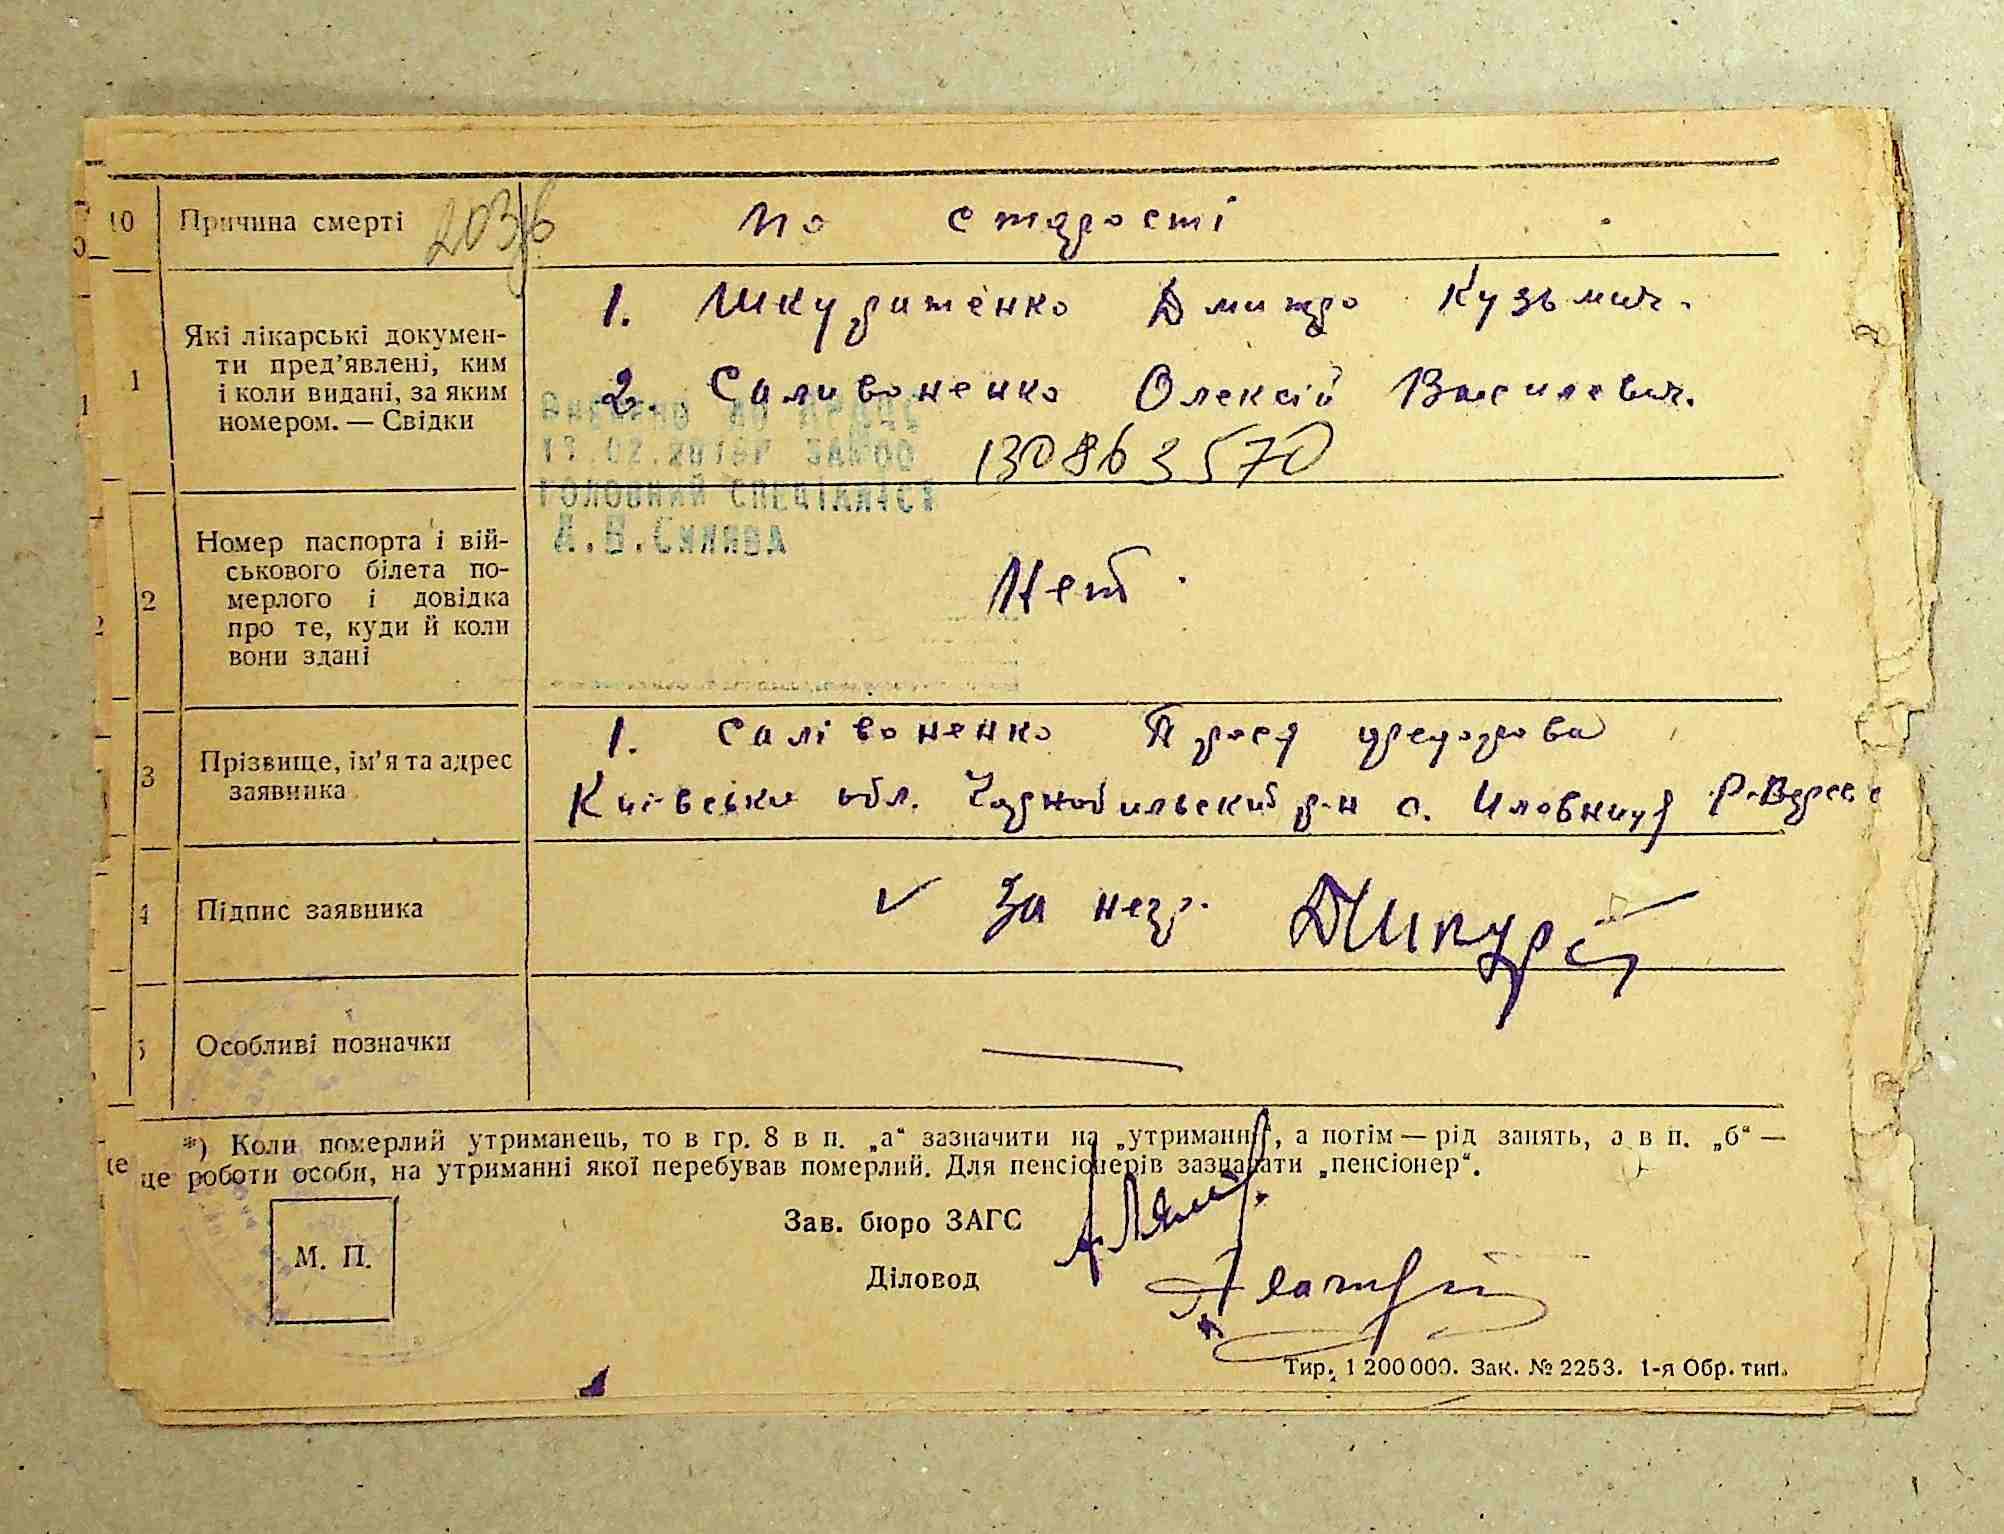 10 Причина смерті по старості
1 Які лікарські докумен-
ти пред’явлені, ким
і коли видані, за яким
номером. — Свідки
1. Шкуратенко Дмитро Кузьмич.
2. Саливоненко Олексій Василевич.
130863570
ГОЛОВНИЙ СПЕЦІАЛІСТ
2 Номер паспорта і вій-
ськового білета по-
мерлого і довідка
про те, куди й коли
вони здані
Нет.
3 Прізвище, ім’я та адрес
заявника
1. Салівоненко
Київська обл. Чорнобильский р-н с. Иловниця
4 Підпис заявника За негр.
5 Особливі позначки —
*) Коли померлий утриманець, то в гр. 8 в п. „а“ зазначити на „утриманні“, а потім — рід занять, а в п. „б“ —
це роботи особи, на утриманні якої перебував померлий. Для пенсіонерів зазначати „пенсіонер“.
М. П.
Зав. бюро ЗАГС
Діловод
Тир. 1 200 000. Зак. № 2253. 1-я Обр. тип.